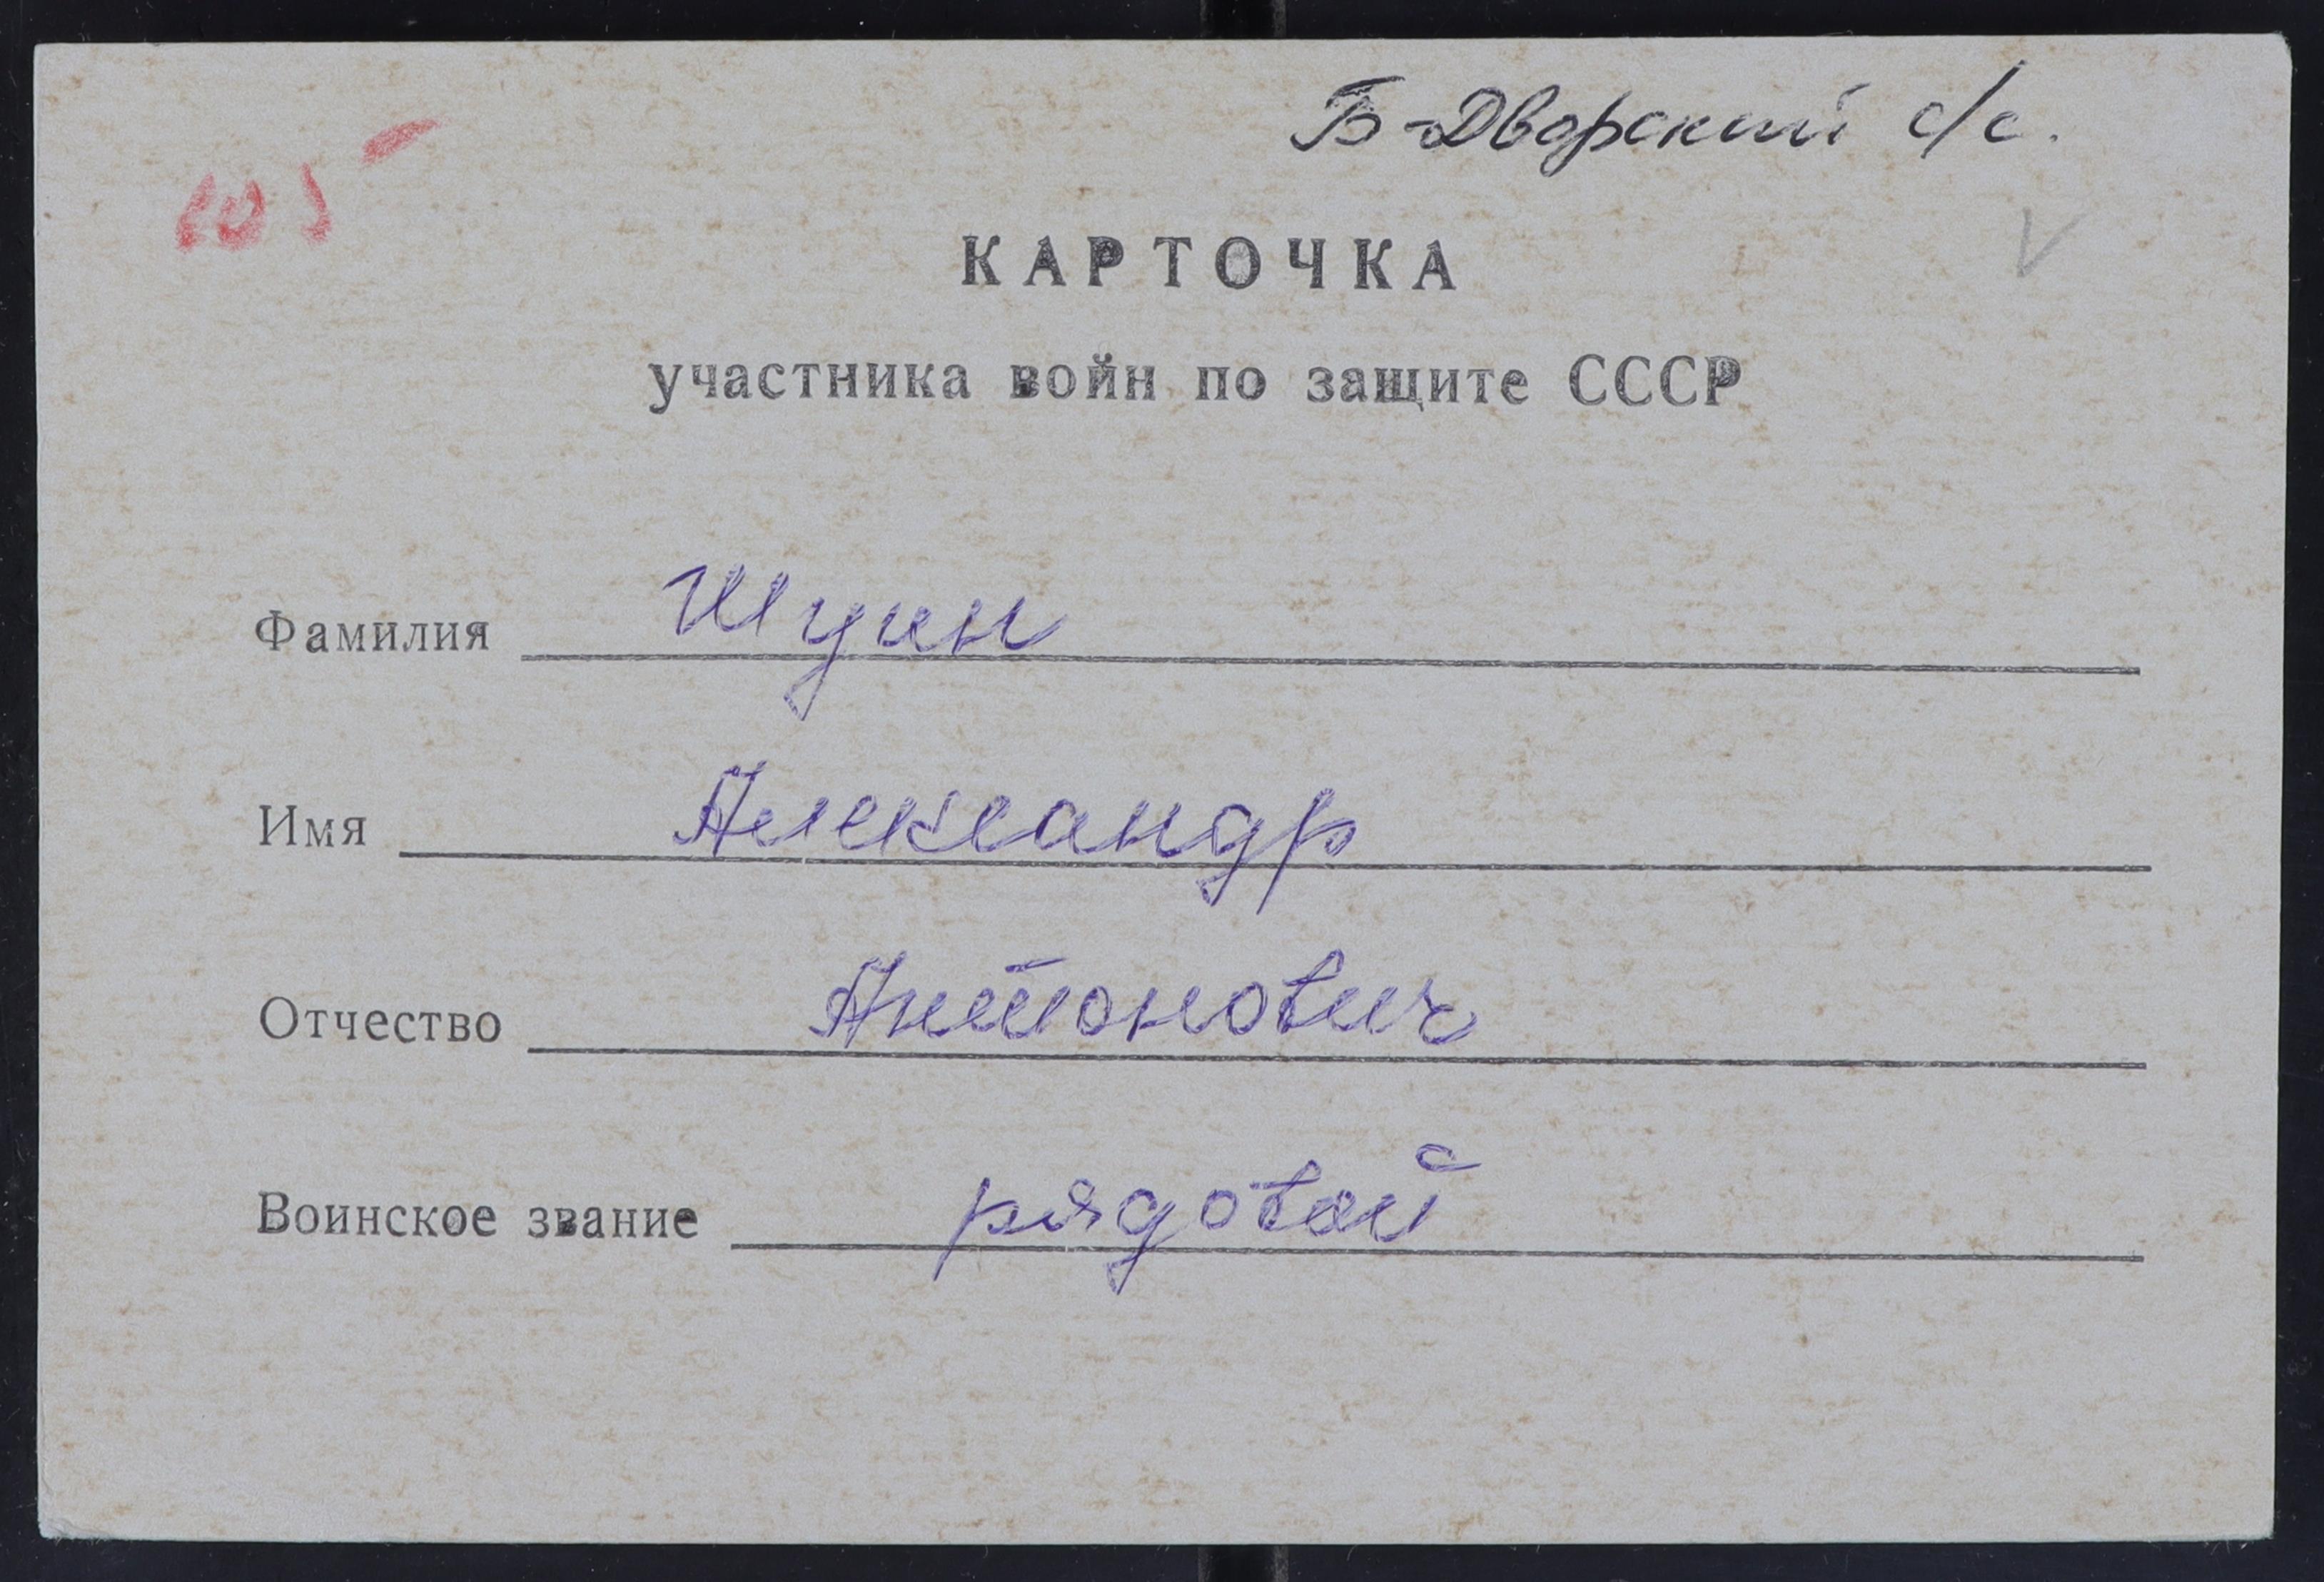 Б-Дворский с/с.
105
КАРТОЧКА
участника войн по защите СССР
Фамилия Шуин
Имя Александр
Отчество Антонович
Воинское звание рядовой